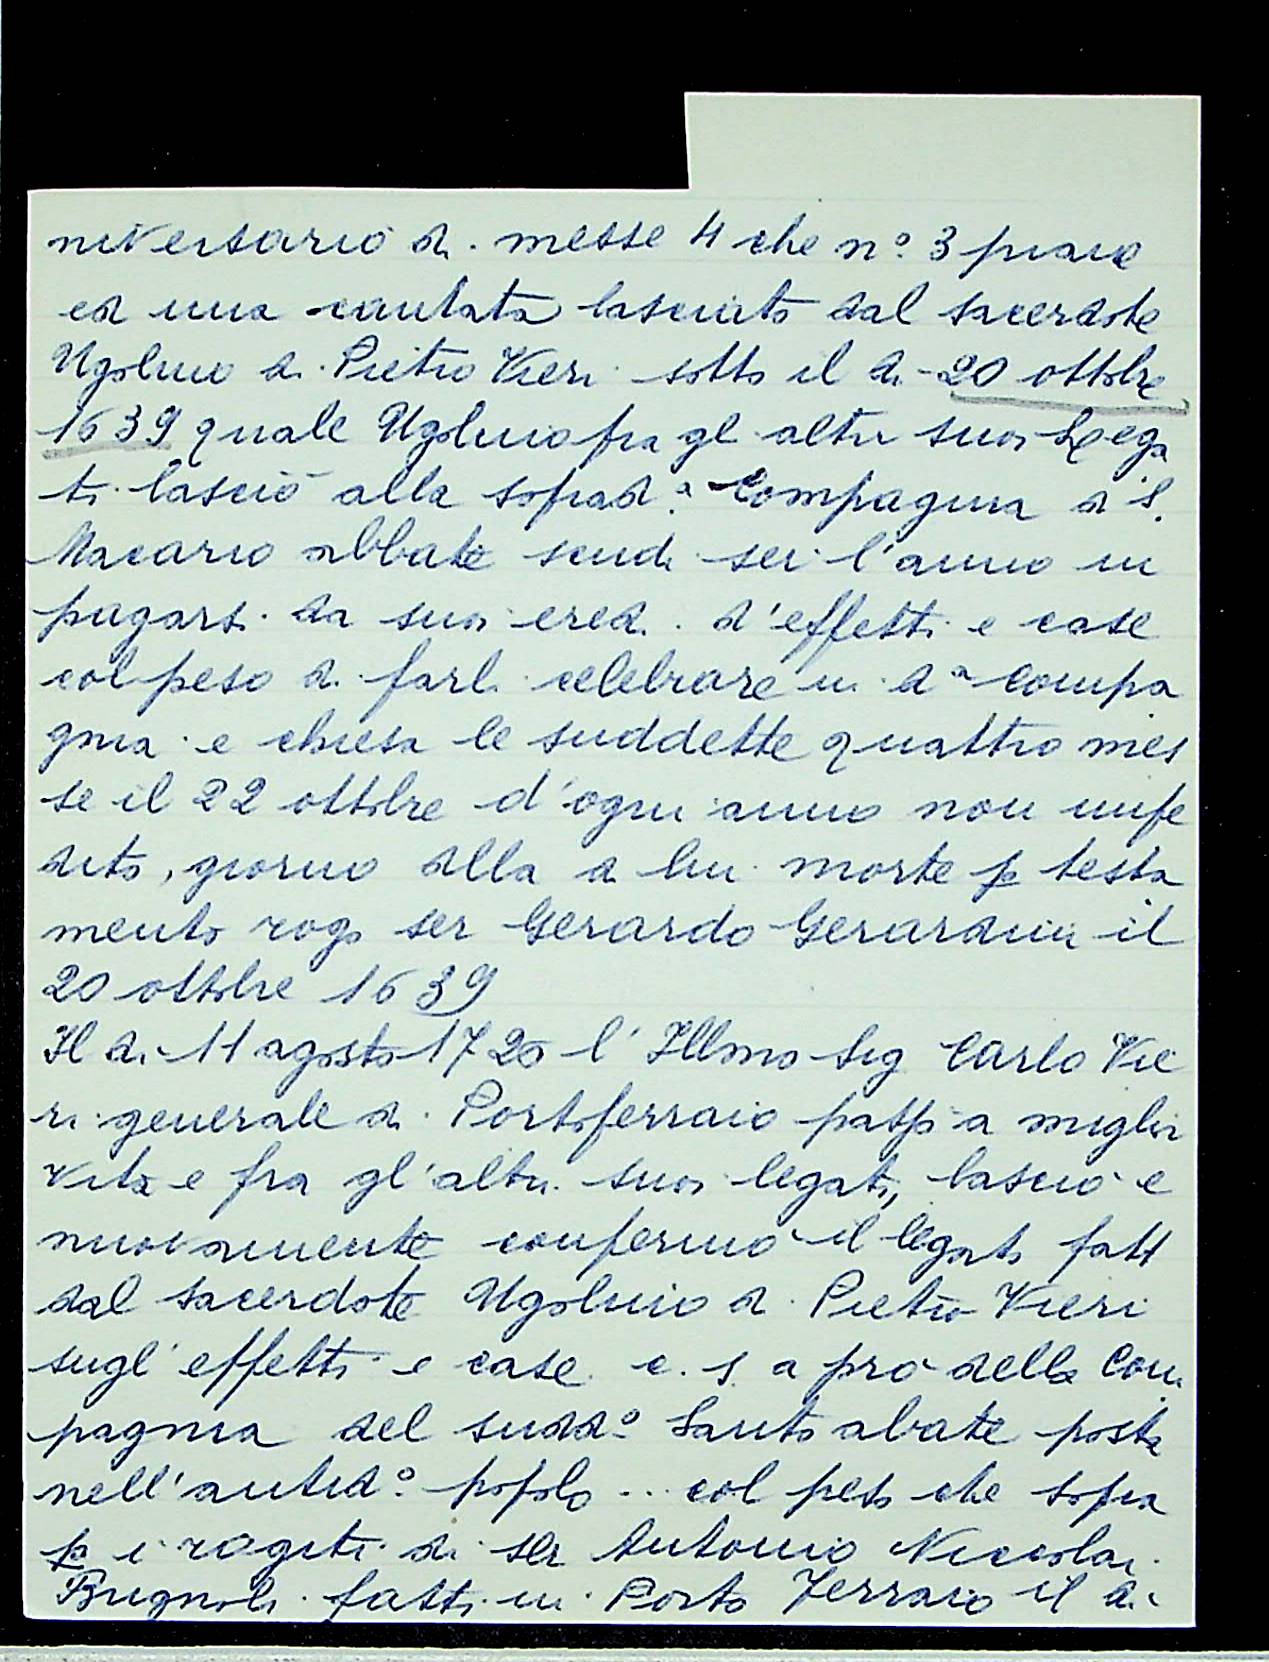 niversario di messe 4 che n° 3 piane
ed una cantata lasciato dal sacerdote
Ugolino di Pietro Vieri sotto il di 20 ottobre
1639 quale Ugolino fra gl altri suoi Lega
ti lasciò alla soprad.ª Compagnia di S.
Macario abbate scudi sei l'anno in
pagarsi da suoi eredi d'effetti e case
col peso di farli celebrare in d.ª Compa
gnia e chiesa le suddette quattro mes
se il 22 ottobre d'ogni anno non impe
dito, giorno della di lui morte p testa
mento rog° ser Gerardo Gerardini il
20 ottobre 1639
Il di 11 agosto 1720 l'Illmo Sig Carlo Vie
ri generale di Portoferraio passò a miglior
vita e fra gl'altri suoi legati, lasciò e
nuovamente confermò il legato fatt
dal sacerdote Ugolino di Pietro Vieri
sugl'effetti e case c. s. a pro della Com
pagnia del sudd° Santo abate posta
nell'antid° popolo ... col peso che sopra
p i rogiti di ser Antonio Niccolai
Brignoli fatti in Porto Ferraio il di